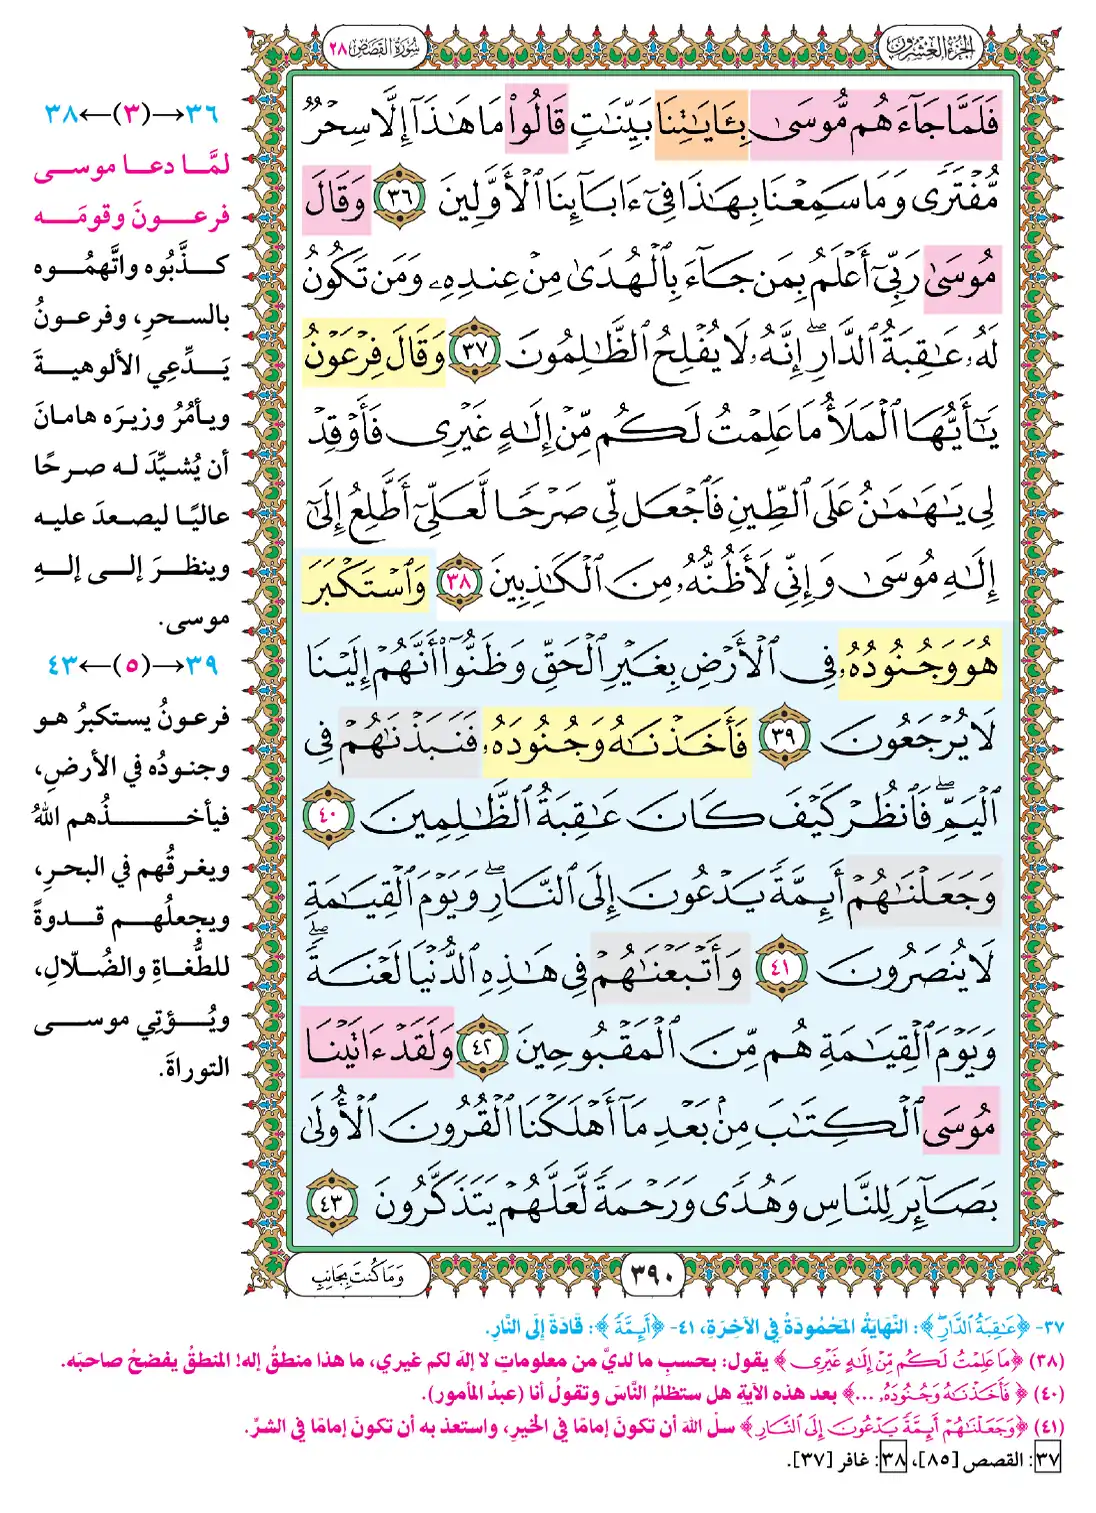 الجزء العشرون
سورة القصص ٢٨
فَلَمَّا جَآءَهُم مُّوسَىٰ بِـَٔايَٰتِنَا بَيِّنَٰتٖ قَالُواْ مَا هَٰذَآ إِلَّا سِحۡرٞ
مُّفۡتَرٗى وَمَا سَمِعۡنَا بِهَٰذَا فِيٓ ءَابَآئِنَا ٱلۡأَوَّلِينَ ٣٦ وَقَالَ
مُوسَىٰ رَبِّيٓ أَعۡلَمُ بِمَن جَآءَ بِٱلۡهُدَىٰ مِنۡ عِندِهِۦ وَمَن تَكُونُ
لَهُۥ عَٰقِبَةُ ٱلدَّارِۚ إِنَّهُۥ لَا يُفۡلِحُ ٱلظَّٰلِمُونَ ٣٧ وَقَالَ فِرۡعَوۡنُ
يَٰٓأَيُّهَا ٱلۡمَلَأُ مَا عَلِمۡتُ لَكُم مِّنۡ إِلَٰهٍ غَيۡرِي فَأَوۡقِدۡ
لِي يَٰهَٰمَٰنُ عَلَى ٱلطِّينِ فَٱجۡعَل لِّي صَرۡحٗا لَّعَلِّيٓ أَطَّلِعُ إِلَىٰٓ
إِلَٰهِ مُوسَىٰ وَإِنِّي لَأَظُنُّهُۥ مِنَ ٱلۡكَٰذِبِينَ ٣٨ وَٱسۡتَكۡبَرَ
هُوَ وَجُنُودُهُۥ فِي ٱلۡأَرۡضِ بِغَيۡرِ ٱلۡحَقِّ وَظَنُّوٓاْ أَنَّهُمۡ إِلَيۡنَا
لَا يُرۡجَعُونَ ٣٩ فَأَخَذۡنَٰهُ وَجُنُودَهُۥ فَنَبَذۡنَٰهُمۡ فِي
ٱلۡيَمِّۖ فَٱنظُرۡ كَيۡفَ كَانَ عَٰقِبَةُ ٱلظَّٰلِمِينَ ٤٠
وَجَعَلۡنَٰهُمۡ أَئِمَّةٗ يَدۡعُونَ إِلَى ٱلنَّارِۖ وَيَوۡمَ ٱلۡقِيَٰمَةِ
لَا يُنصَرُونَ ٤١ وَأَتۡبَعۡنَٰهُمۡ فِي هَٰذِهِ ٱلدُّنۡيَا لَعۡنَةٗۖ
وَيَوۡمَ ٱلۡقِيَٰمَةِ هُم مِّنَ ٱلۡمَقۡبُوحِينَ ٤٢ وَلَقَدۡ ءَاتَيۡنَا
مُوسَى ٱلۡكِتَٰبَ مِنۢ بَعۡدِ مَآ أَهۡلَكۡنَا ٱلۡقُرُونَ ٱلۡأُولَىٰ
بَصَآئِرَ لِلنَّاسِ وَهُدٗى وَرَحۡمَةٗ لَّعَلَّهُمۡ يَتَذَكَّرُونَ ٤٣
٣٩٠
وَمَا كُنتَ بِجَانِبِ
٣٦→(٣)←٣٨
لمَّا دعا موسى
فرعونَ وقومَه
كذَّبُوه واتَّهمُوه
بالسحرِ، وفرعونُ
يَدِّعِي الألوهيةَ
ويأمُرُ وزيرَه هامانَ
أن يُشيِّدَ له صرحًا
عاليًا ليصعدَ عليه
وينظرَ إلى إلهِ
موسى.
٣٩→(٥)←٤٣
فرعونُ يستكبرُ هو
وجنودُه في الأرضِ،
فيأخذُهم اللهُ
ويغرقُهم في البحرِ،
ويجعلُهم قدوةً
للطُّغاةِ والضُّلّالِ،
ويُؤتِي موسى
التوراةَ.
٣٧- ﴿عَٰقِبَةُ ٱلدَّارِۚ﴾: النِّهَايَةُ المَحْمُودَةُ فِي الآخِرَةِ، ٤١- ﴿أَئِمَّةٗ﴾: قَادَةً إِلَى النَّارِ.
(٣٨) ﴿مَا عَلِمۡتُ لَكُم مِّنۡ إِلَٰهٍ غَيۡرِي﴾ يقول: بحسبِ ما لديَّ من معلوماتٍ لا إلهَ لكم غيري، ما هذا منطقُ إله! المنطقُ يفضحُ صاحبَه.
(٤٠) ﴿فَأَخَذۡنَٰهُ وَجُنُودَهُۥ ...﴾ بعد هذه الآيةِ هل ستظلمُ النَّاسَ وتقولُ أنا (عبدُ المأمور).
(٤١) ﴿وَجَعَلۡنَٰهُمۡ أَئِمَّةٗ يَدۡعُونَ إِلَى ٱلنَّارِ﴾ سلْ اللهَ أن تكونَ إمامًا في الخيرِ، واستعذ به أن تكونَ إمامًا في الشرِّ.
٣٧: القصص [٨٥]، ٣٨: غافر [٣٧].